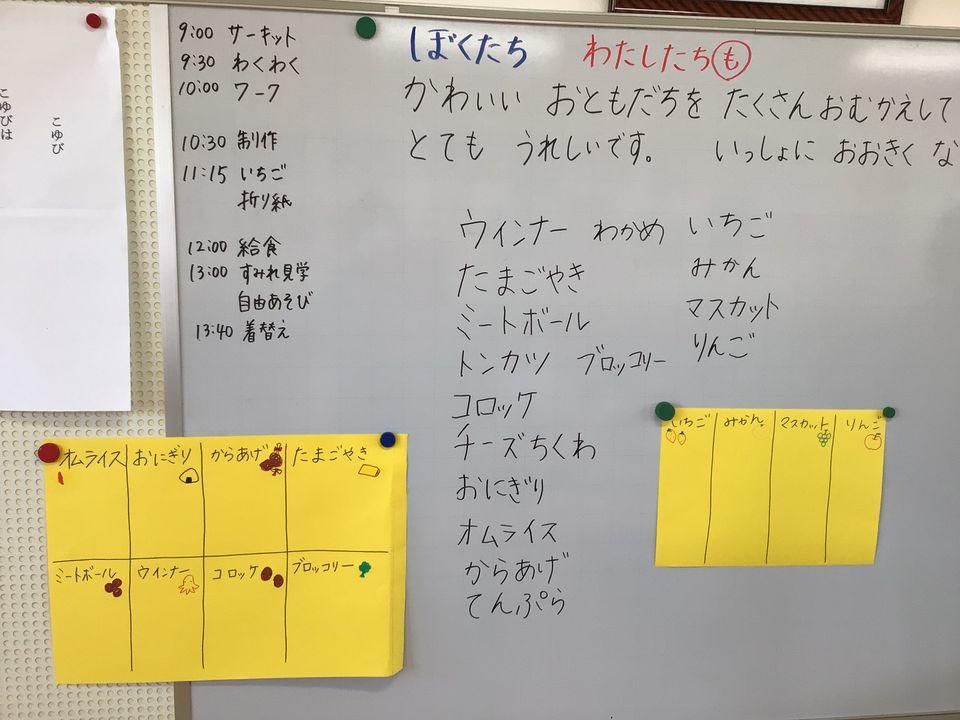 こゆびは
こゆび
9:00 サーキット
9:30 わくわく
10:00 ワーク
10:30 制作
11:15 いちご
折り紙
12:00 給食
13:00 すみれ見学
自由あそび
13:40 着替え
ぼくたち わたしたちも
かわいい おともだちを たくさん おむかえして
とても うれしいです。 いっしょに おおきく な
ウィンナー わかめ いちご
たまごやき みかん
ミートボール マスカット
トンカツ ブロッコリー りんご
コロッケ
チーズちくわ
おにぎり
オムライス
からあげ
てんぷら
オムライス おにぎり からあげ たまごやき
ミートボール ウィンナー コロッケ ブロッコリー
いちご みかん マスカット りんご